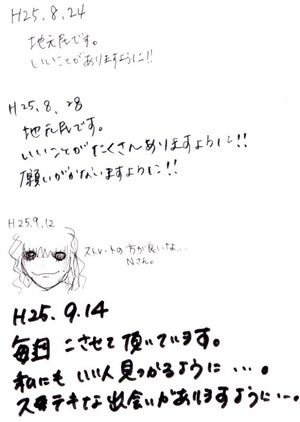 H25.8.24
地元民です。
いいことがありますように!!
H25.8.28
地元民です。
いいことがたくさんありますように!!
願いがかないますように!!
H25.9.12
ストレートの方が良いな...
Nさん。
H25.9.14
毎週 こさせて頂いています。
私にもいい人見つかるように・・・。
ステキな出会いがありますように・・・。